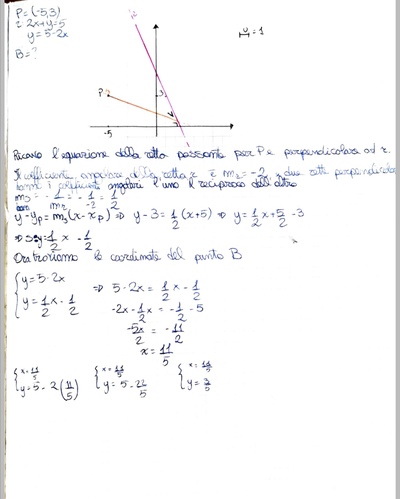 P=(-5,3)
r 2x+y=5
y=5-2x
B=?
r
u=1
P
3
-5
Ricavo l'equazione della retta passante per P e perpendicolare ad r.
Il coefficiente angolare della retta r è m2=-2, due rette perpendicolari
hanno i coefficienti angolari l'uno il reciproco dell'altro
ms=-1/m2=-1/-2=1/2
y-yp=ms(x-xp) => y-3=1/2(x+5) => y=1/2x+5/2-3
=> s:y=1/2x-1/2
Ora troviamo le coordinate del punto B
{y=5-2x
{y=1/2x-1/2 => 5-2x=1/2x-1/2
-2x-1/2x=-1/2-5
-5x/2=-11/2
x=11/5
{x=11/5 {x=11/5 {x=11/5
{y=5-2(11/5) {y=5-22/5 {y=3/5